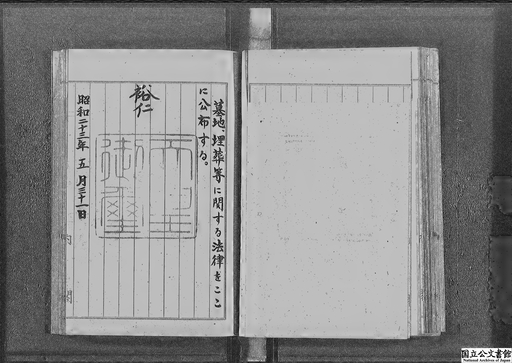 墓地、埋葬等に関する法律をここ
に公布する。
裕仁
天皇
御璽
昭和二十三年五月三十一日
内閣
国立公文書館
National Archives of Japan